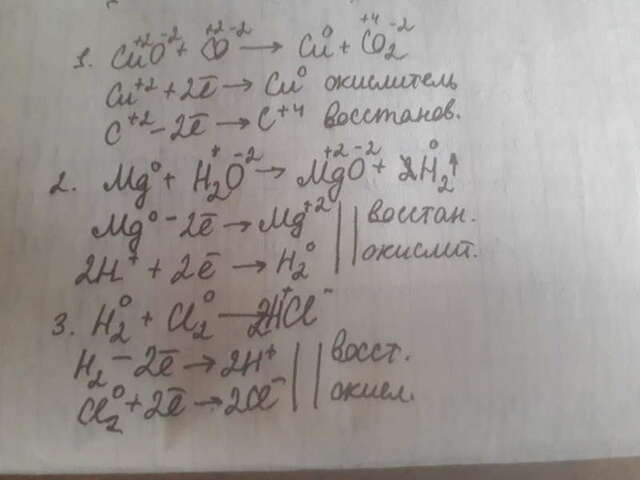 1. Cu⁺²O⁻² + C⁺²O⁻² → Cu⁰ + C⁺⁴O₂⁻²
Cu⁺² + 2ē → Cu⁰ окислитель
C⁺² - 2ē → C⁺⁴ восстанов.
2. Mg⁰ + H₂⁺O⁻² → Mg⁺²O⁻² + H₂⁰↑
Mg⁰ - 2ē → Mg⁺² || восстан.
2H⁺ + 2ē → H₂⁰ || окислит.
3. H₂⁰ + Cl₂⁰ → 2H⁺Cl⁻
H₂ - 2ē → 2H⁺ || восст.
Cl₂⁰ + 2ē → 2Cl⁻ || окисл.